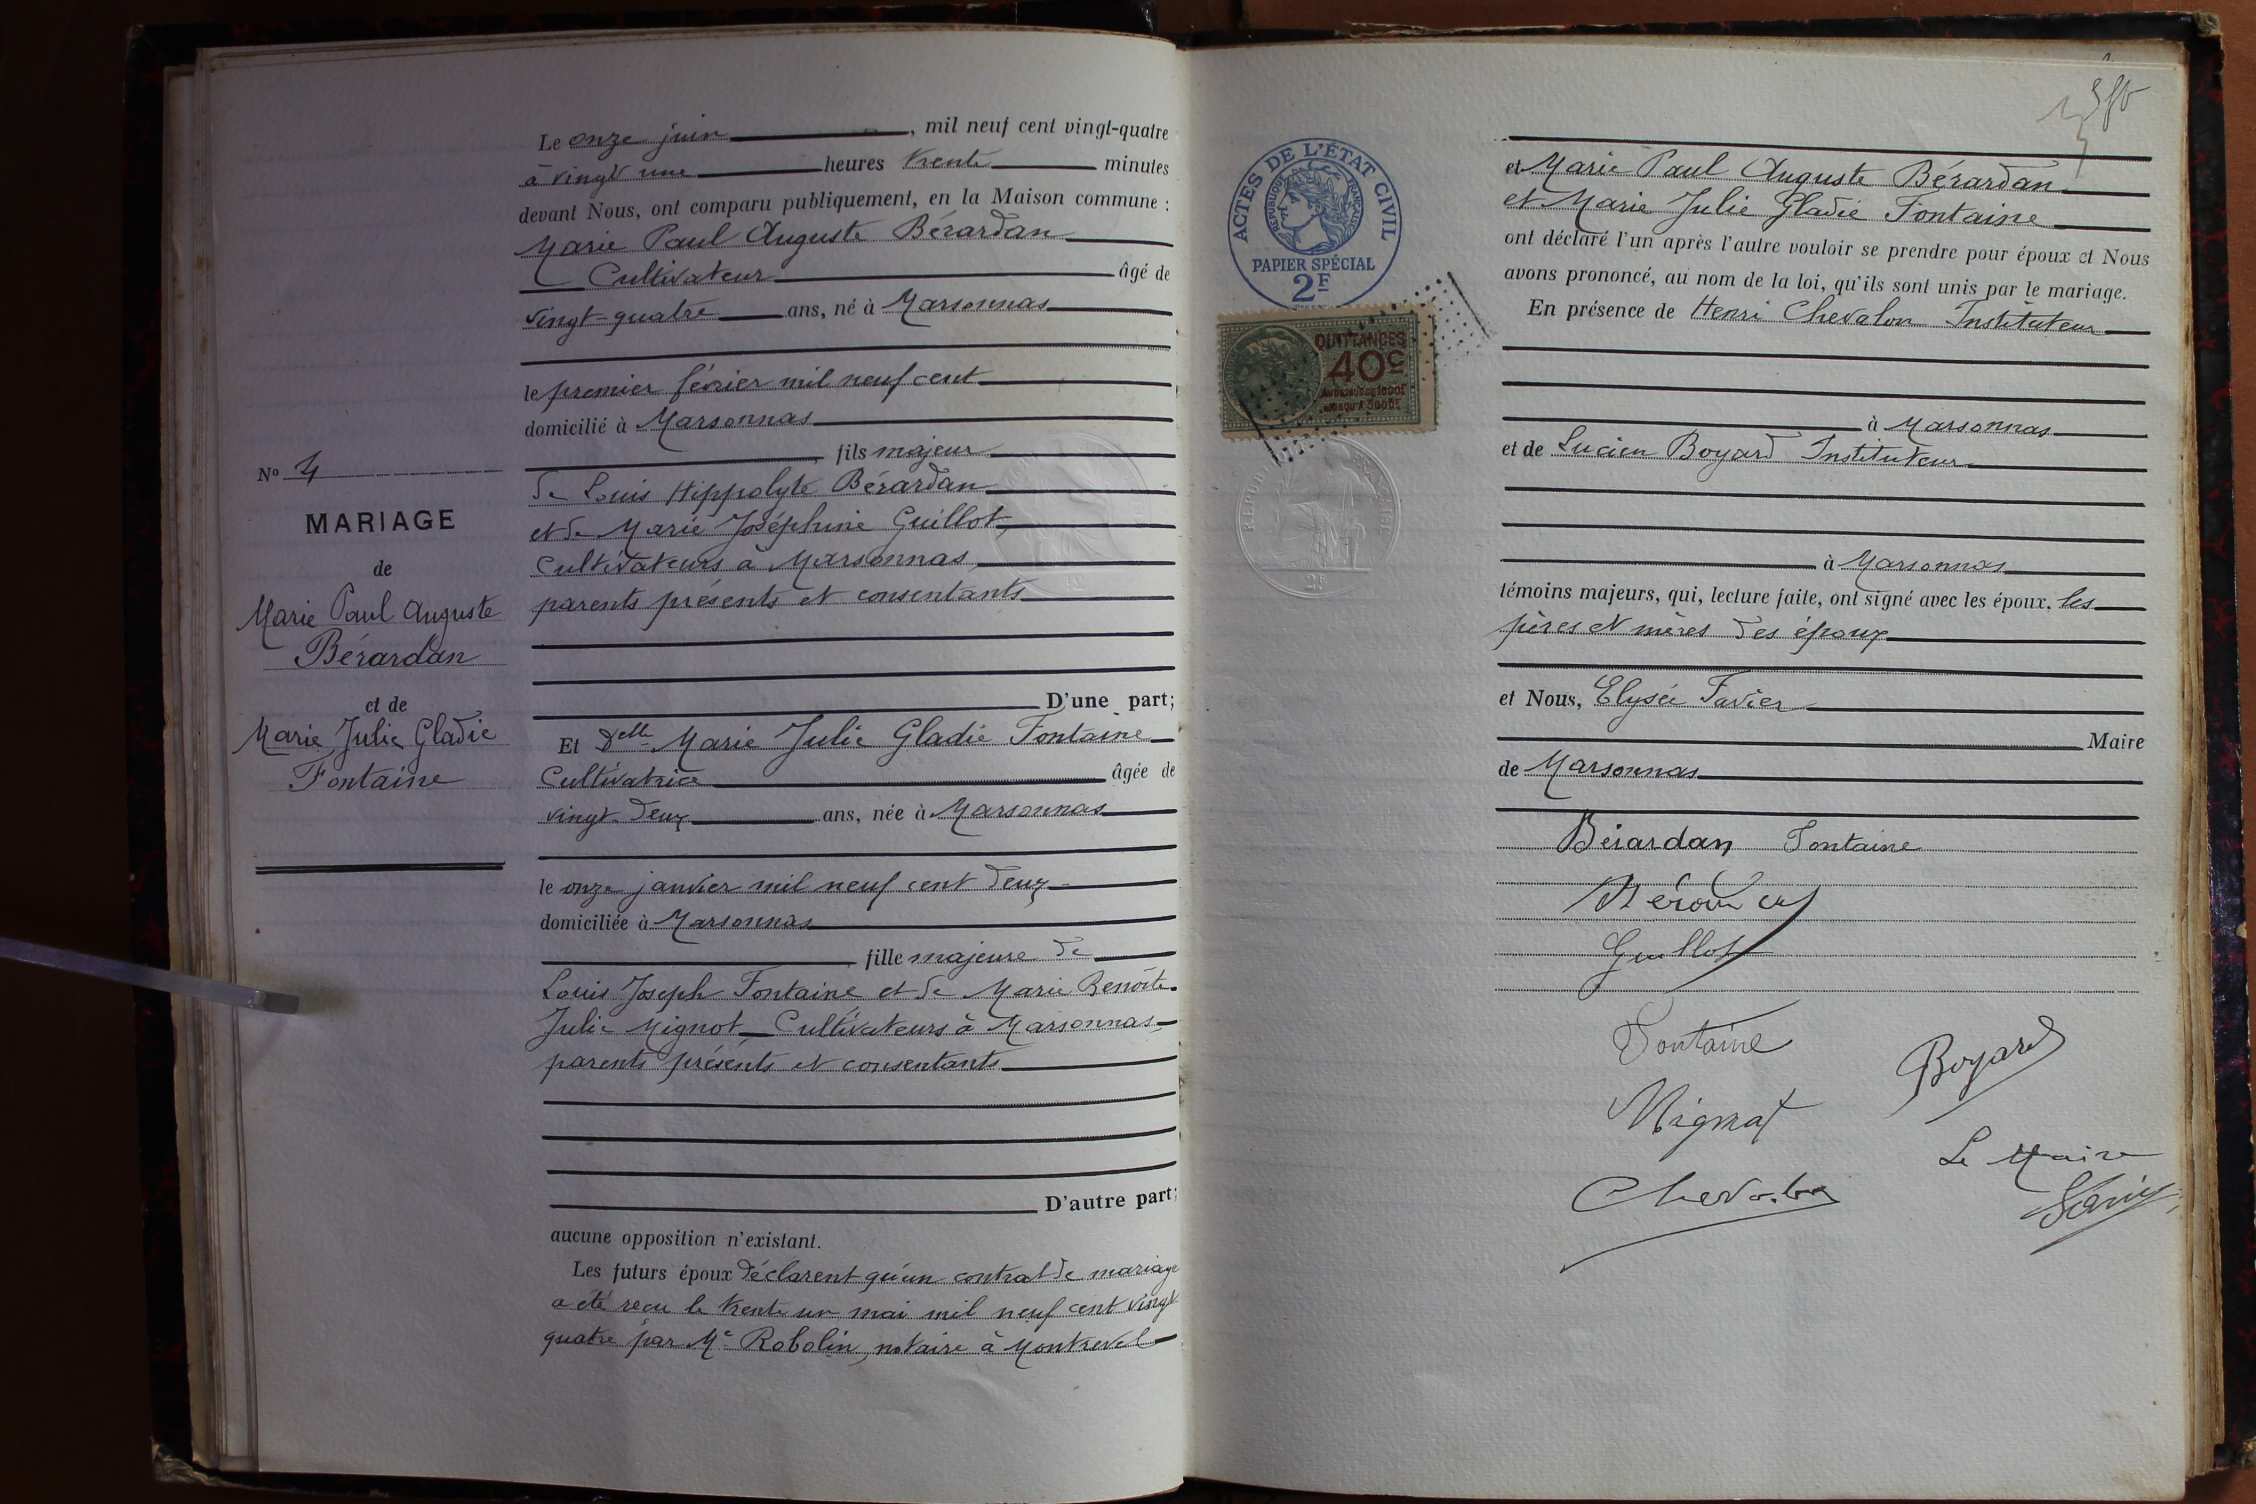 Le onze juin, mil neuf cent vingt-quatre
à vingt une heures trente minutes
devant Nous, ont comparu publiquement, en la Maison commune :
Marie Paul Auguste Bérardan
Cultivateur âgé de
vingt-quatre ans, né à Marsonnas
le premier février mil neuf cent
domicilié à Marsonnas
fils majeur
de Louis Hippolyte Bérardan
et de Marie Joséphine Guillot,
Cultivateurs à Marsonnas,
parents présents et consentants
D'une part;
Et Delle Marie Julie Gladie Fontaine
Cultivatrice âgée de
vingt-deux ans, née à Marsonnas
le onze janvier mil neuf cent deux
domiciliée à Marsonnas
fille majeure de
Louis Joseph Fontaine et de Marie Benoîte
Julie Mignot Cultivateurs à Marsonnas,
parents présents et consentants
D'autre part;
aucune opposition n'existant.
Les futurs époux déclarent qu'un contrat de mariage
a été reçu le trente un mai mil neuf cent vingt
quatre par Me Robolin, notaire à Montrevel
No 4
MARIAGE
de
Marie Paul Auguste
Bérardan
et de
Marie Julie Gladie
Fontaine
ACTES DE L'ÉTAT CIVIL
REPUBLIQUE FRANÇAISE
PAPIER SPÉCIAL
2F
QUITTANCES
40c
2F
et Marie Paul Auguste Bérardan
et Marie Julie Gladie Fontaine
ont déclaré l'un après l'autre vouloir se prendre pour époux et Nous
avons prononcé, au nom de la loi, qu'ils sont unis par le mariage.
En présence de Henri Chevalon Instituteur
à Marsonnas
et de Lucien Boyard Instituteur
à Marsonnas
témoins majeurs, qui, lecture faite, ont signé avec les époux. les
pères et mères des époux
et Nous, Elysée Favier
Maire
de Marsonnas
Bérardan Fontaine
Guillot
Fontaine
Boyard
Mignot
Le Maire
Chevalon
Favier